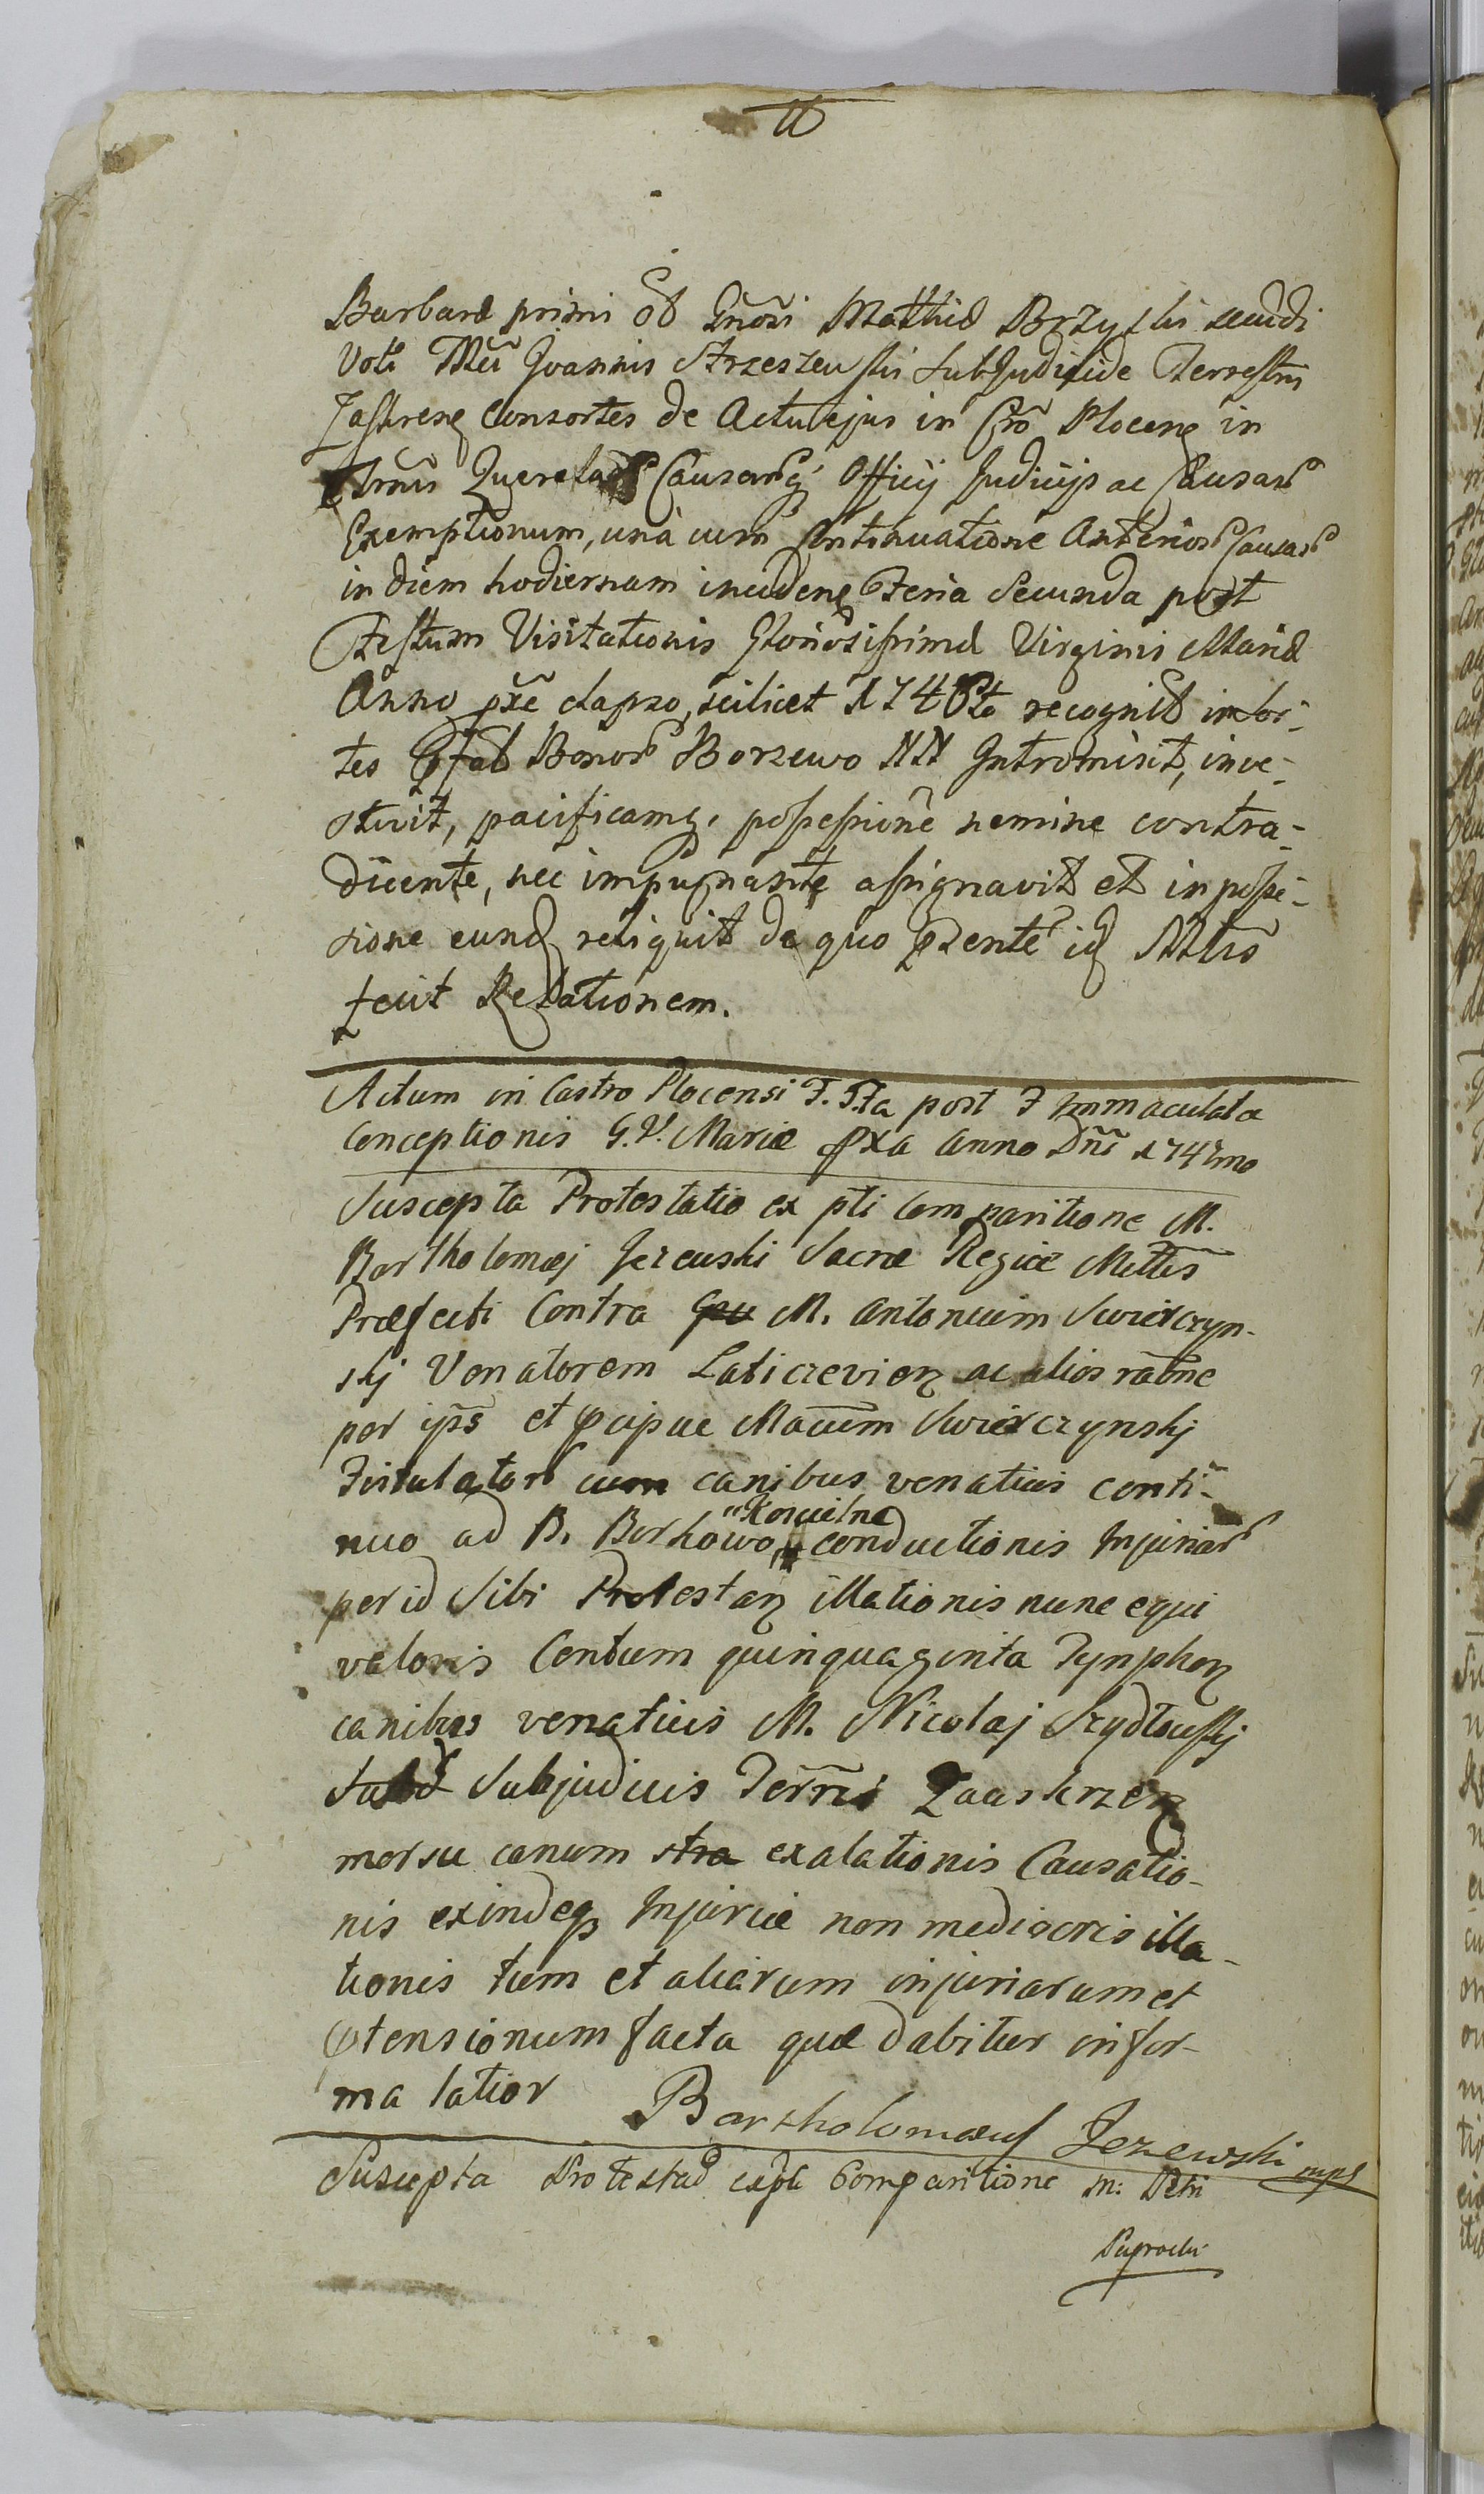 Barbaræ primi ad Gnosi Mathiæ Brzyski secudi
Voti Mci Joannis Strzeszewski SubJudicide Terrestri
Zaskrenę Consortes de Actu ejus in Cro Plocenę in
Trmis Querelar Causarq; Officij Judicijs ac Causar
Exemptionum, una cum Continuatione Anterior Causar
in diem hodiernam incidenę Feria Secunda post
Festum Visitationis Gloriosissimæ Virginis Mariæ
Anno prõe elapso, scilicet 1746to recognit in for-
tes Bonor Borzewo NN Intromisit, inve-
stivit, pacificamq; possessionẽ nemine contra-
dicente, nec impugnante assignavit et in posse-
sione eundę reliquit de quo pzente idę Mtris
fecit Relationem.
Actum in Castro Plocensi F. 5ta post F Immaculatæ
Conceptionis G. V. Mariæ pxa Anno Dni 1747mo
Suscepta Protestatio ex pti Comparitione M.
Bartholomæj Jezewski Sacræ Regiæ Mttis
Præfecti Contra Gu M. Antonium Swierczyn-
skj Venatorem Laticzevienę ac alios raõne
per ips et pcipue Macum Swierczynskj
Fistulator cum canibus venaticis conti-
nuo ad B. Borkowo "Koscielne conductionis Injuriar
per id Sibi Protestanę illationis nunc equi
valoris Centum quinquaginta Tynphonę
canibus venaticis M. Nicolaj Szydłowskj
Subd Subjudicis Terris Zaaskrzenę
morsu canum stra exalationis Causatio-
nis exindeqȝ Injuriæ non mediocris illa-
tionis tum et aliarum injuriarum et
Otensionum facta quæ dabitur in for-
ma latior Bartholomæus Jezewski mpp
Suscepta Protestaõ exptli Comparitione M: Petri
Paprocki